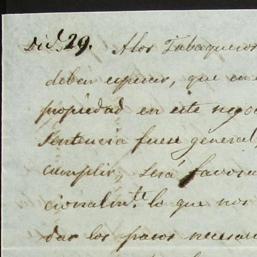 Did. 29. A los Tabaqueros
deben esperar, que en
propiedad en este nego
Sentencia fuese general,
cumplir, será favora
cionalmte. lo que nos
dar los pasos necesa